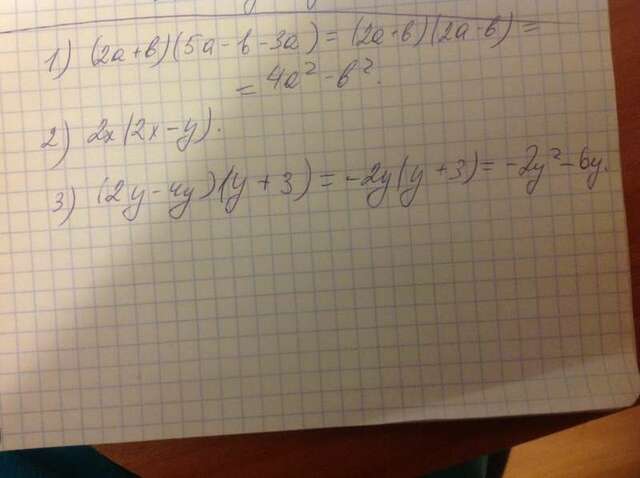 1) (2a+b)(5a-b-3a) = (2a+b)(2a-b) =
= 4a² - b².
2) 2x(2x-y).
3) (2y-4y)(y+3) = -2y(y+3) = -2y²-6y.